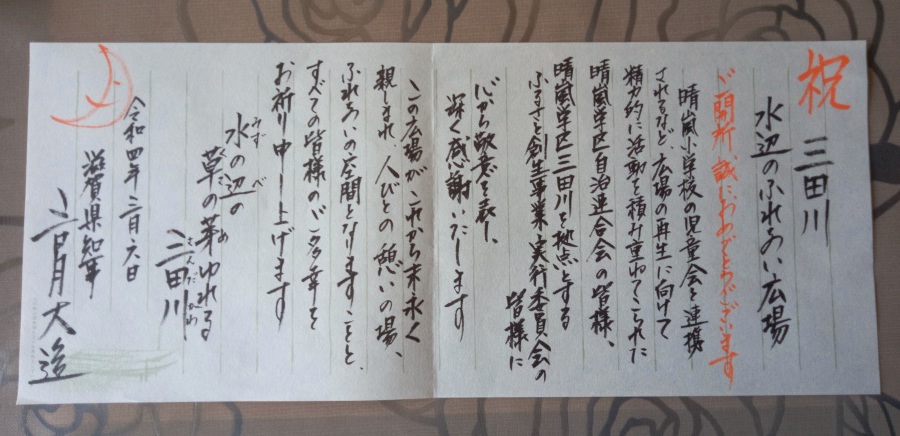 祝 三田川
水辺のふれあい広場
ご開所 誠におめでとうございます
晴嵐小学校の児童会と連携
されるなど、広場の再生に向けて
精力的に活動を積み重ねてこられた
晴嵐学区自治連合会の皆様、
晴嵐学区三田川を拠点とする
ふるさと創生事業実行委員会の
皆様に
心から敬意を表し、
深く感謝いたします
この広場がこれから末永く
親しまれ、人びとの憩いの場、
ふれあいの空間となりますことと、
すべての皆様のご多幸を
お祈り申し上げます
水の辺の
みず べ
草の芽ゆれる
め
三田川
さんだがわ
令和四年三月六日
滋賀県知事
三日月大造